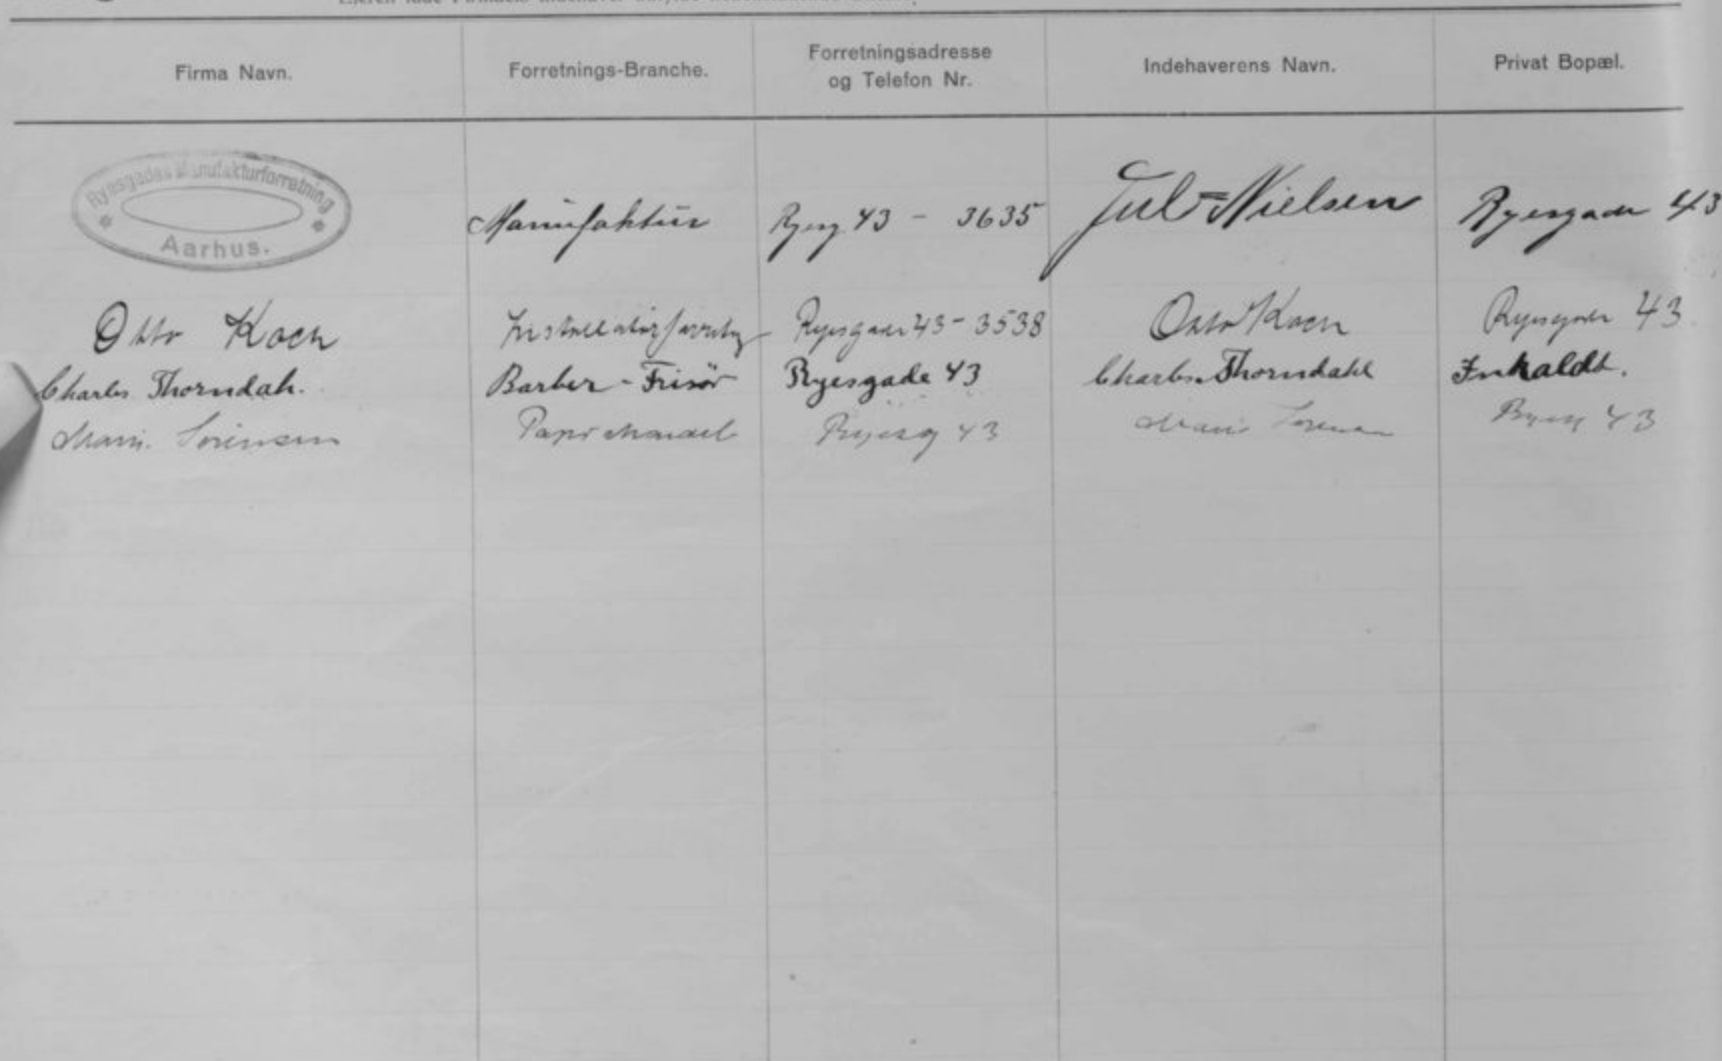 Firma Navn. Forretnings-Branche. Forretningsadresse og Telefon Nr. Indehaverens Navn. Privat Bopæl.
Ryesgades Manufakturforretning
Aarhus.
Manufaktur Ryesg 43 - 3635 Jul Nielsen Ryesgade 43
Otto Koch Ryesgade 43 - 3538 Otto Koch Ryesgade 43
Charles Thorndah. Barber - Frisör Ryesgade 43 Charles Thorndahl
Marie Sørensen Ryesg 43 Marie Sørensen Ryesg 43